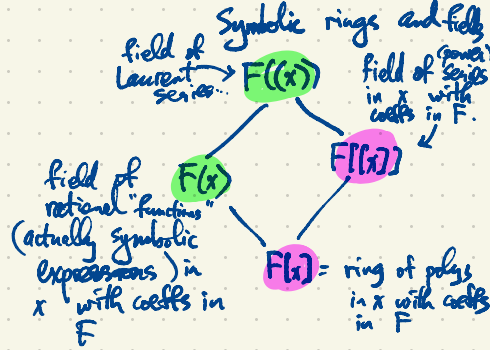 Symbolic rings and fields
field of
Laurent
series...
F((x))
field of (power)
series
in x with
coeffs in F.
F(x)
F[[x]]
field of
rational "functions"
(actually symbolic
expressions) in
x with coeffs in
F
F[x] = ring of polys
in x with coeffs
in F